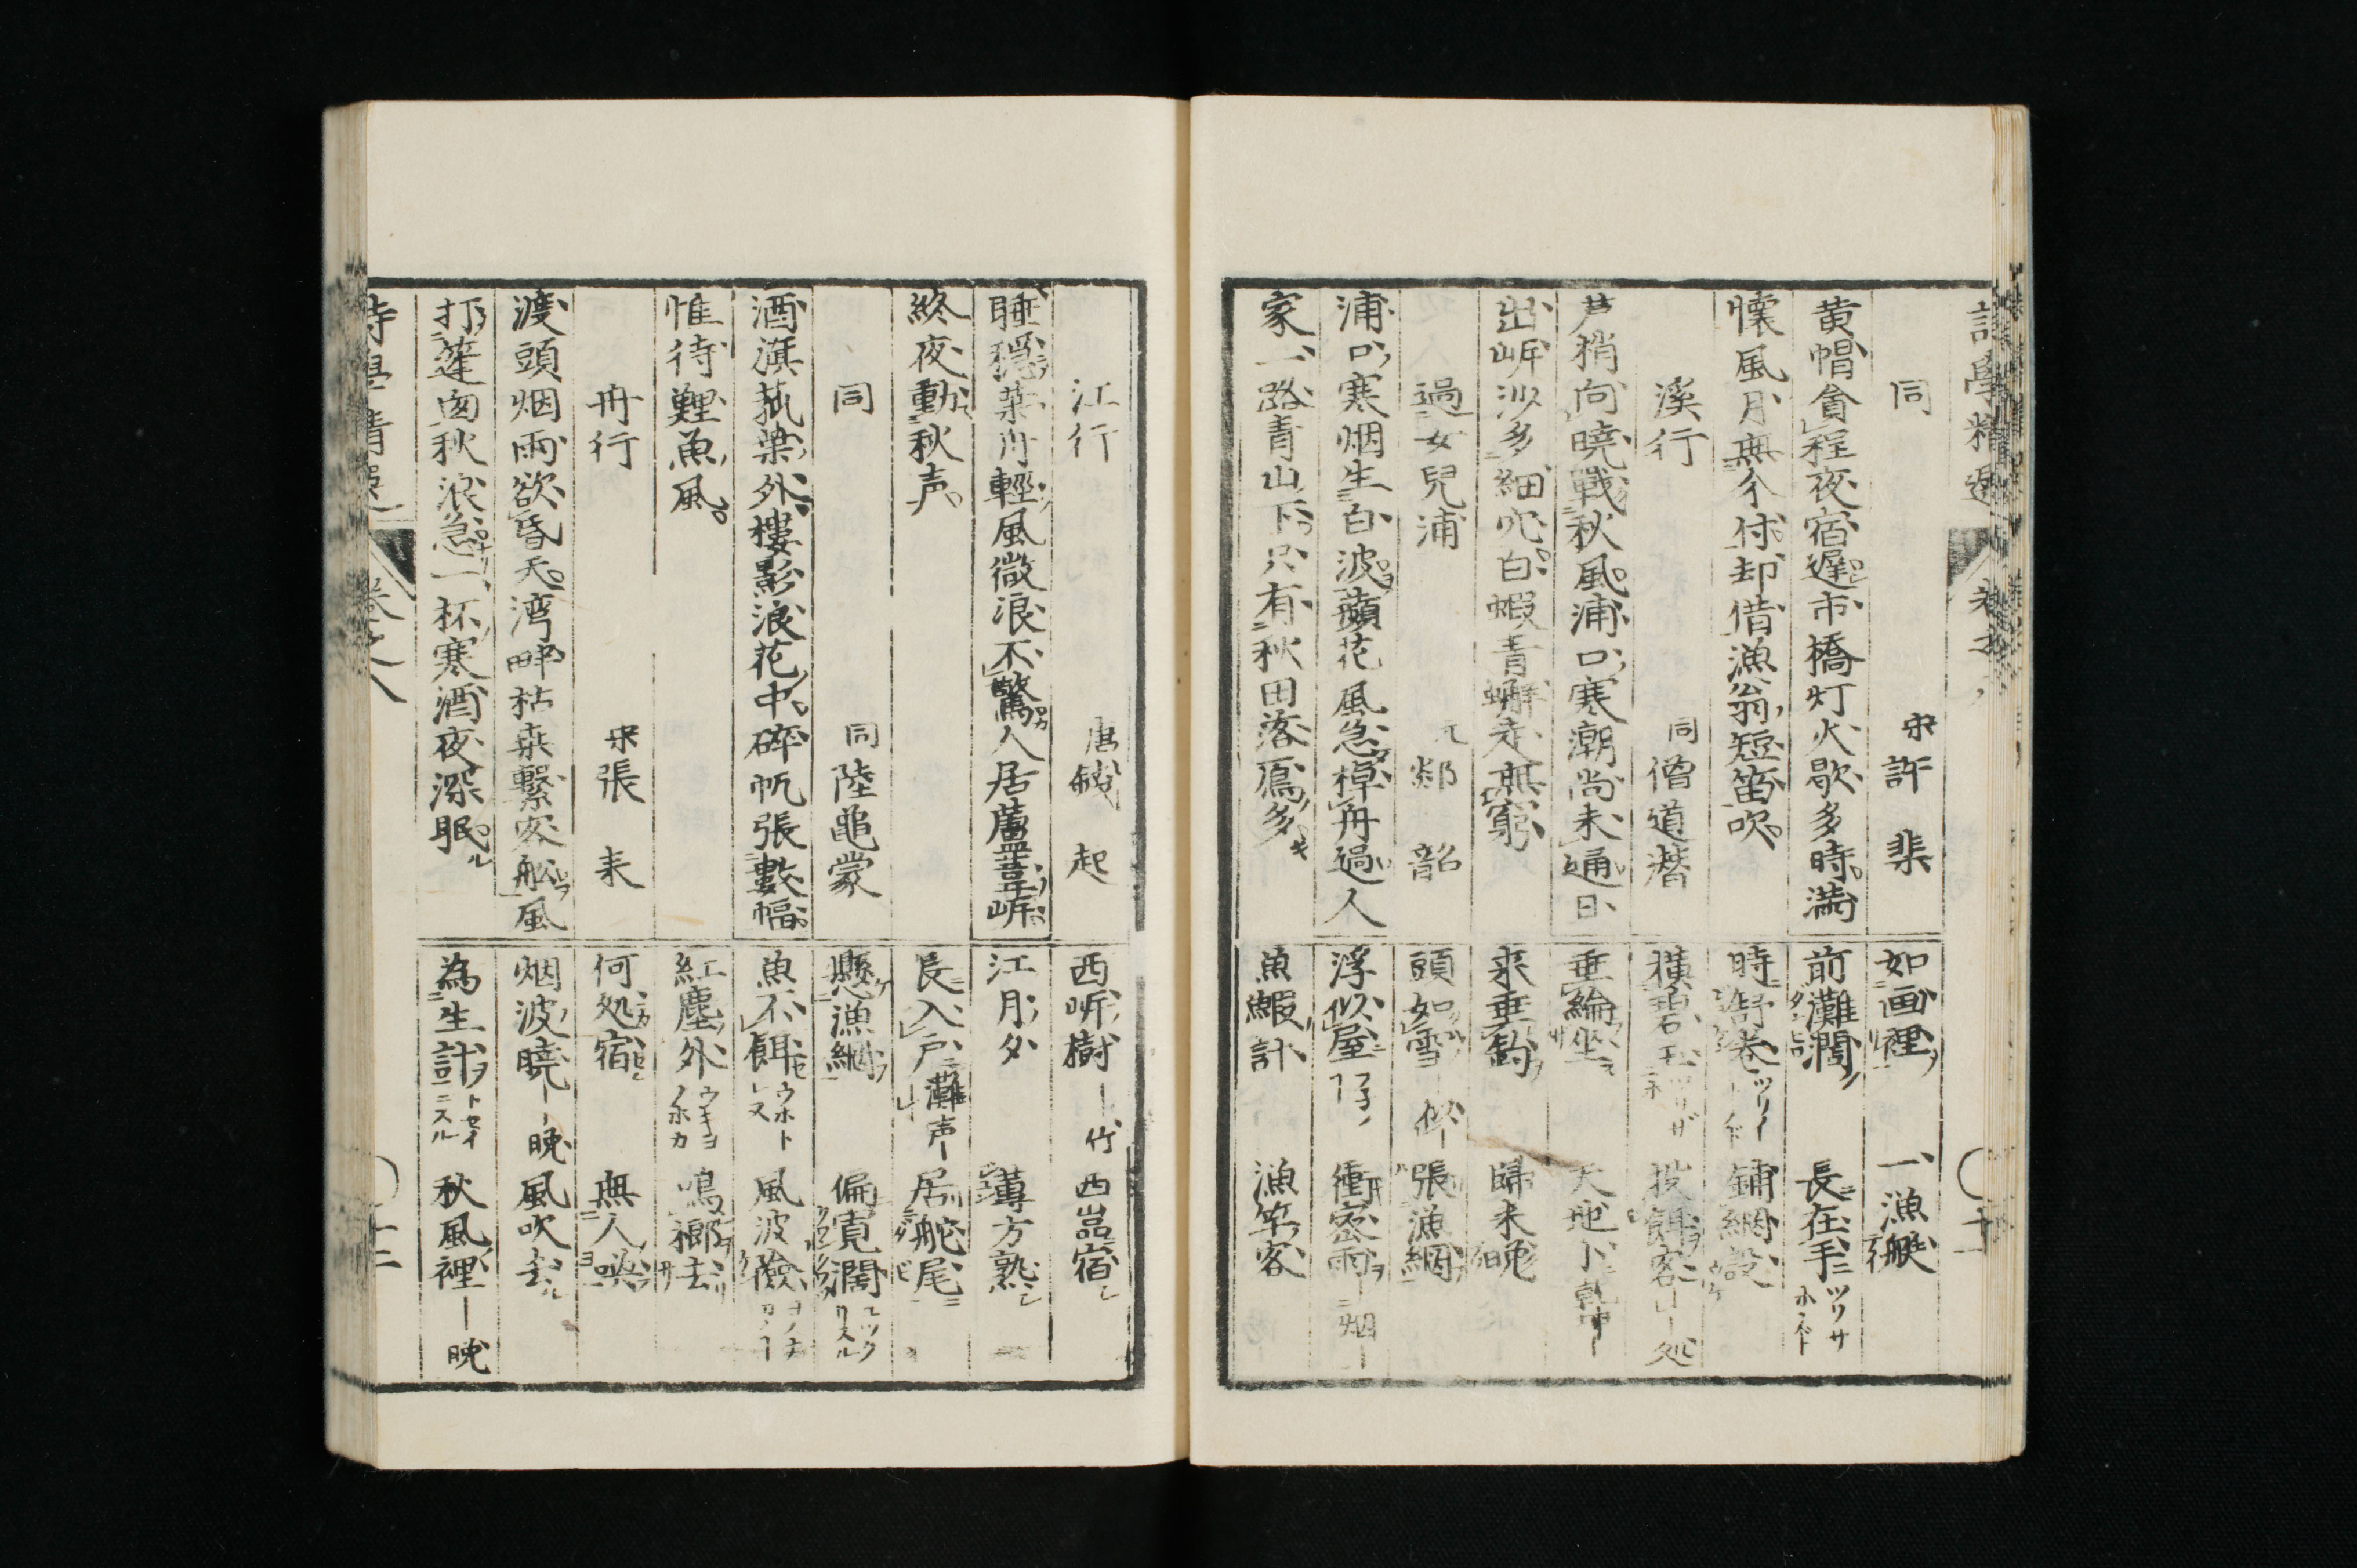 同　宋許棐
黄帽貪程夜宿遅市橋灯火歇多時満
懐風月無分付却借漁翁短笛吹
溪行　同僧道潜
芦梢向曉戰秋風浦口寒潮尚未通日
出岍沙多細穴白蝦青蠏走無窮
過女兒浦　元鄰韶
浦口寒烟生白波蘋花風急棹舟過人
家一路青山下只有秋田落鴈多
如画裡　一漁艇
前灘濶　長在手
時舒巻　鋪網設
横碧玉
垂綸坐　天地小
来垂釣　歸来晩
頭如雪　張漁網
浮似屋　衝密雨
魚鰕計　漁竿客
江行　唐錢起
睡穏葉舟輕風微浪不驚人居蘆葦岍
終夜動秋声
同　同陸龜蒙
酒旗菰葉外樓影浪花中碎帆張數幅
惟待鯉魚風
舟行　宋張耒
渡頭烟雨欲昏天湾畔枯桒繋客舩風
打篷囱秋浪急一杯寒酒夜深眠
西岍樹　竹　西嵓宿
江月夕　蓴方熟
長入戸　灘声　居舵尾
懸漁網　偏寛濶
魚不餌　風波險
紅塵外　鳴榔去
何処宿　無人喚
烟波曉　晩　風吹去
為生計　秋風裡　晩